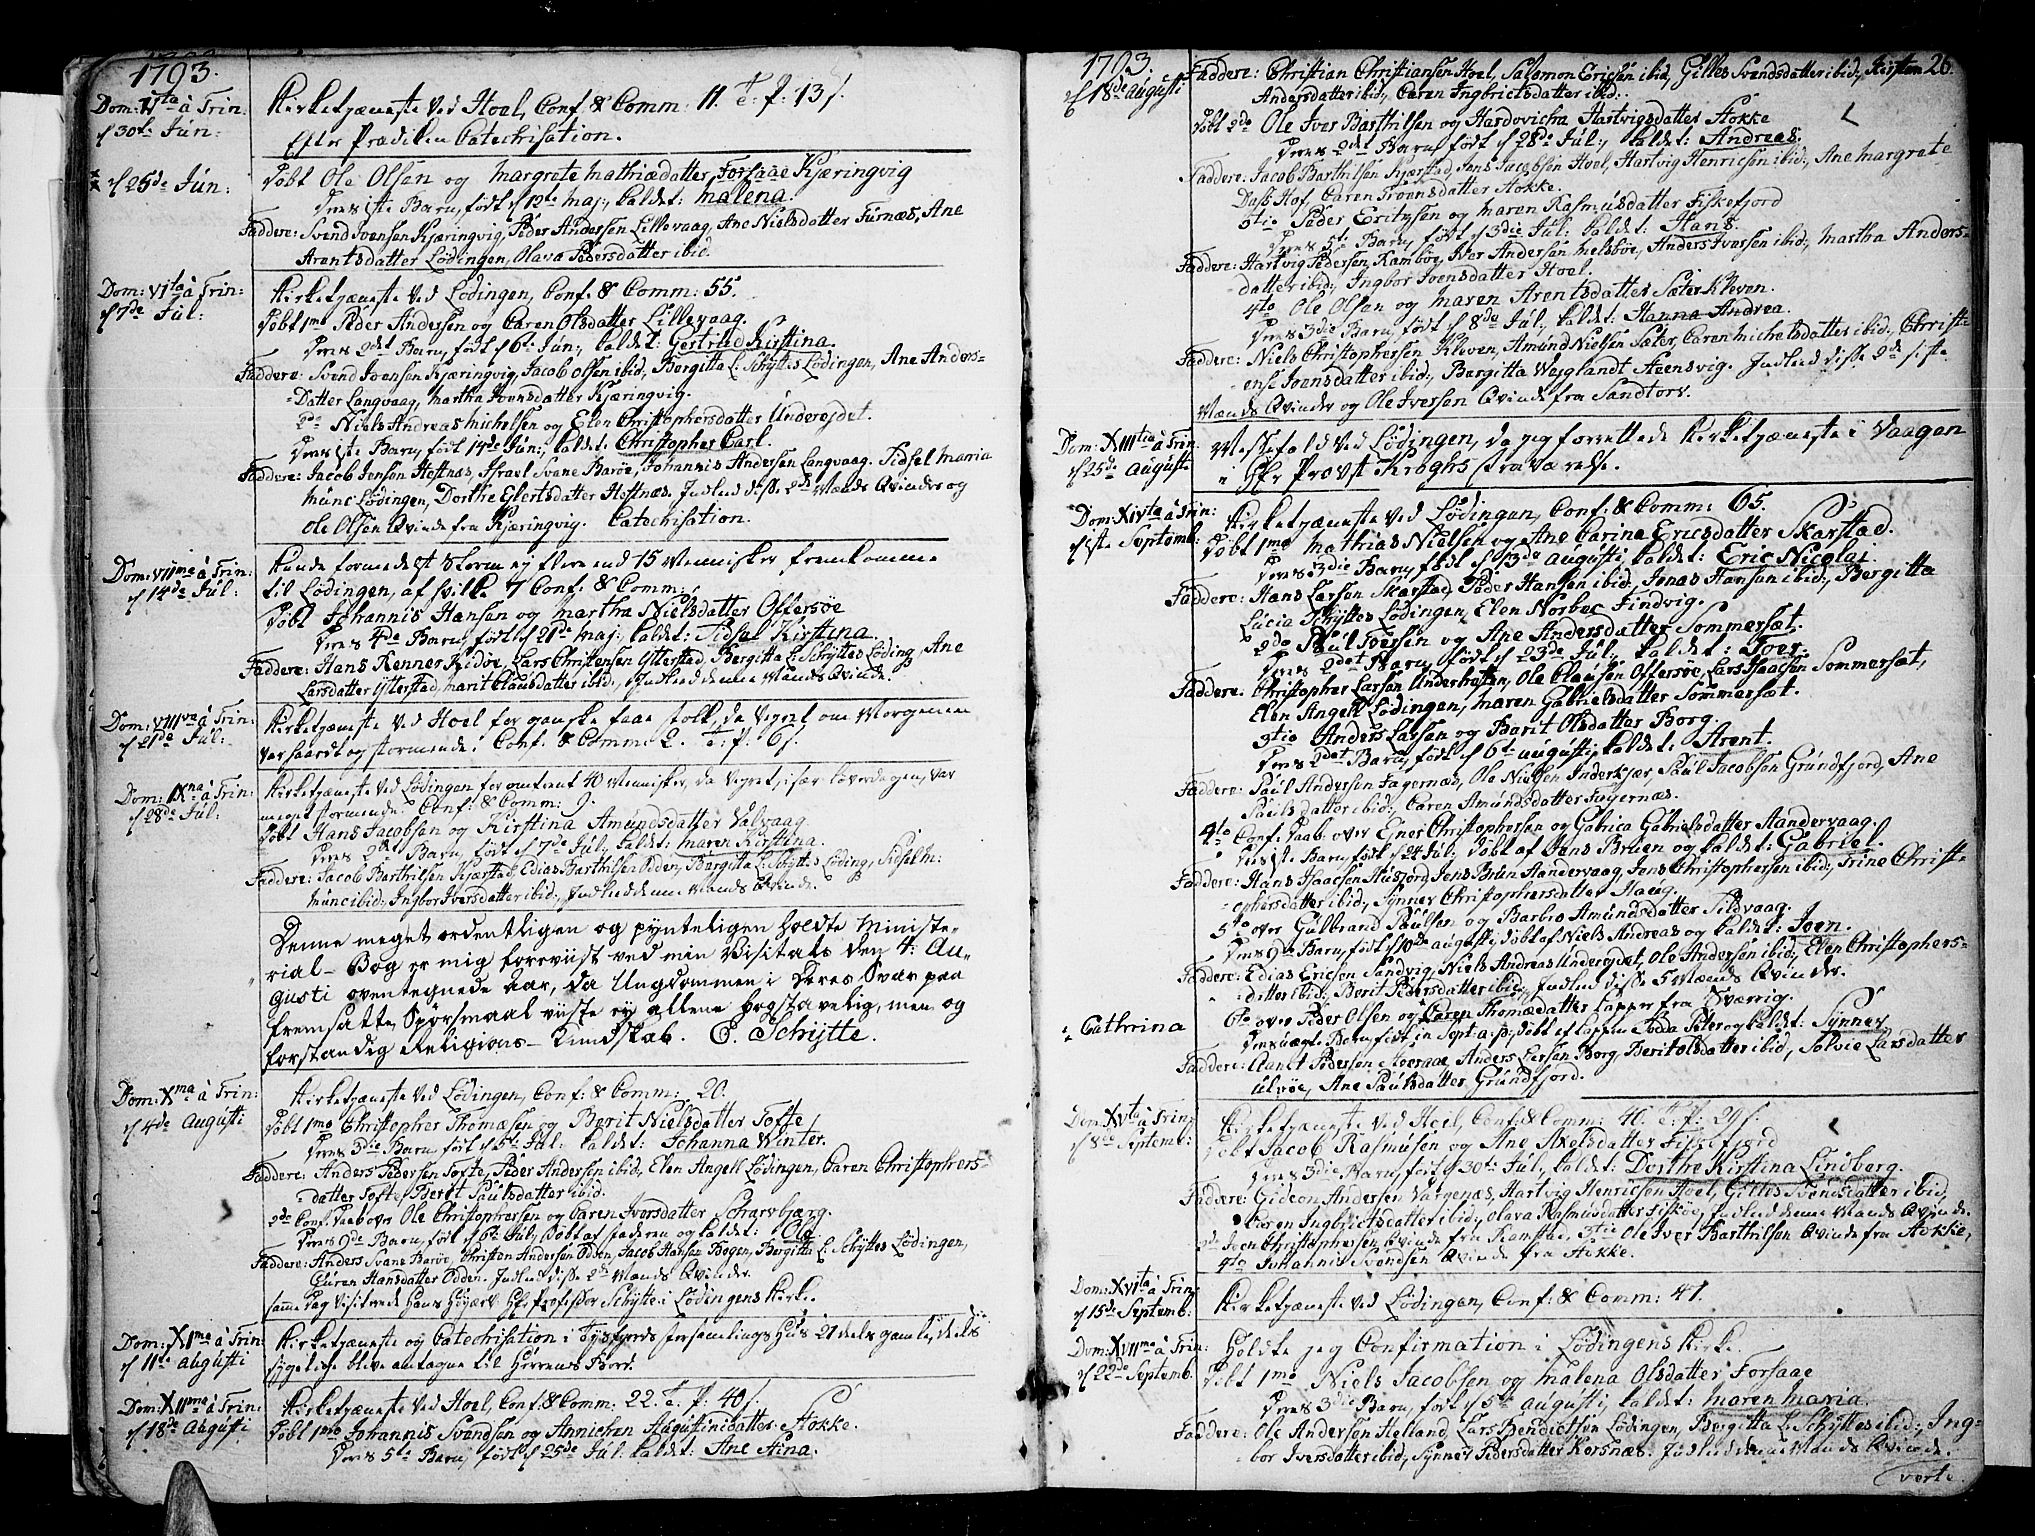 1793.
Dom: Vta à Trin:
d 30te Jun:
Kirketjæneste ved Hoel, Conf: & Comm: 11. T: P: 13 s.
Efter Prædiken Catechisation.
d 25de Jun:
Döbt Ole Olsen og Margrete Mathiædatter, Forsaae Kjæringvig
Deres 1ste Barn, født d 12te Maj, kaldet: Malena.
Faddere: Svend Ivensen Kjæringvig, Peder Andersen Lillevaag, Ane Nielsdatter Furnæs, Ane
Arentsdatter Lödingen, Olava Pedersdatter ibid.
Dom: VIta à Trin:
d 7de Jul:
Kirketjæneste ved Lödingen, Conf: & Comm: 55.
Döbt 1mo Peder Andersen og Caren Olsdatter Lillevaag.
Deres 2det Barn, født d 6te Jun:, kaldet: Gertrud Kirstina.
Faddere: Svend Ivensen Kjæringvig, Jacob Olsen ibid, Bergitta L: Schyttes Lödingen, Ane Anders-
Datter Langvaag, Martha Ivensdatter Kjæringvig.
2do Niels Andreas Michelsen og Elen Christophersdatter Underejdet.
Deres 1ste Barn, født 14de Jun:, kaldet: Christopher Carl.
Faddere: Jacob Jensen Hestnæs, Israel Svane Baröe, Johannis Andersen Langvaag, Sidsel Maria
Munc Lödingen, Dorthe Elertsdatter Hestnæs. Indled disse 2de Mænds Qvinder og
Ole Olsen Qvinde fra Kjæringvig. Catechisation.
Dom: VIIma à Trin:
d 14de Jul:
Kunde formedelst Storm ej flere end 15 Mennisker fremkomme
til Lödingen, af hvilke 7 Conf: & Comm:
Döbt Johannis Hansen og Martha Nielsdatter Offersöe
Deres 4de Barn, født d 21de Maj, kaldet: Sidsel Kirstina.
Faddere: Hans Renner Ridöe, Lars Christensen Ytterstad, Bergitta L: Schyttes Löding, Ane
Larsdatter Ytterstad, Marit Clausdatter ibid:, Indled denne Mands Qvinde.
Dom: VIIIva à Trin:
d 21de Jul:
Kirketjæneste ved Hoel for ganske faae Folk, da Vejret om Morgenen
var haardt og stormende. Conf: & Comm: 2. T: P: 6 s.
Dom: IXna à Trin:
d 28de Jul:
Kirketjæneste ved Lödingen for omtrent 40 Mennisker, da Vejret, især Löverdagen, var
meget stormende. Conf: & Comm: 9.
Döbt Hans Jacobsen og Kirstina Amundsdatter Valvaag.
Deres 2det Barn, født d 7de Jul:, kaldet: Maren Kirstina.
Faddere: Jacob Barthilsen Kjærstad, Edias Barthilsen Odden, Bergitta L: Schyttes Löding, Sidsel M:
Munc ibid:, Ingbor Iversdatter ibid:, Indled denne Mands Qvinde.
Denne meget ordentligen og pynteligen holdte Ministe-
rial-Bog er mig foreviist ved min Visitats den 4: Au-
gusti oventegnede Aar, da Ungdommen i deres Svar paa
fremsatte Spörsmaal viiste ej allene bogstavelig, men og
forstandig Religions-Kundskab. E. Schytte.
Dom: Xma à Trin:
d 4de Augusti
Kirketjæneste ved Lödingen, Conf: & Comm: 20.
Döbt 1mo Christopher Thomæsen og Berit Nielsdatter Tofte
Deres 3die Barn, født d 6te Jul: kaldet: Johanna Winter.
Faddere: Anders Pedersen Tofte, Peder Andersen ibid:, Elen Angell Lödingen, Caren Christophers-
datter Tofte, Beret Paulsdatter ibid.
2do Conf: Daab over Ole Christophersen og Caren Iversdatter Skarsbjærg.
Deres 9de Barn, født d 6te Jul, Döbt af Faderen og kaldet: Ole
Faddere: Anders Svane Baröe, Christen Andersen Odden, Jacob Hansen Bogen, Bergitta L: Schyttes Lödingen,
Guren Hansdatter Odden. Indled disse 2de Mænds Qvinder.
samme Dag visiterede Hans Höjærv: Hr: Professor Schytte i Lödingens Kirke.
Dom: XIma à Trin:
d 11te Augusti
Kirketjæneste og Catechisation i Tysfjords Forsamlings Hus, 21 deels gamle, deels
sygelige blive antagne til Herrens Bord.
Dom: XIIma à Trin:
d 18de Augusti
Kirketjæneste ved Hoel, Conf: & Comm: 22. T: P: 40 s.
Döbt 1mo Johannis Svendsen og Annichen Augustinidatter Stokke.
Deres 5te Barn, født d 25de Jul: kaldet: Ane Stina.
1793.
26.
d 18de Augusti
Faddere: Christian Christiansen Hoel, Salomon Ericsen ibid, Gilles Svendsdatter ibid:, Kirsten
Andersdatter ibid:, Caren Ingbrictsdatter ibid:.
Döbt 2do Ole Iver Barthilsen og Hardovicha Hartvigsdatter Stokke
Deres 2det Barn, født d 28de Jul:, kaldet: Andreas.
Faddere: Jacob Barthilsen Kjærstad, Jens Jacobsen Hoel, Hartvig Henricsen ibid:, Ane Margrete
Dass Hof, Caren Ivensdatter Stokke.
3tio Peder Eritzsen og Maren Rasmusdatter Fiskefjord
Deres 5te Barn, født d 3die Jul: kaldet: Hans.
Faddere: Hartvig Pedersen, Ramböe, Iver Andersen Melsböe, Anders Iversen ibid:, Martha Anders-
datter ibid:, Ingbor Ivensdatter Hoel.
4to Ole Olsen og Maren Arentsdatter Sæter Kleven.
Deres 3die Barn, født d 8de Jul:, kaldet: Hanna Andrea.
Faddere: Niels Christophersen Kleven, Amund Nielsen Sæter, Caren Michelsdatter ibid:, Christ-
ense Ivensdatter ibid:, Bergitta Wejglandt Steensvig. Indled disse 2de sidste
Mænds Qvinder og Ole Iversen Qvinde fra Sandtorv.
Dom: XIIItia à Trin:
d 25de Augusti
Messefald ved Lödingen, da jeg forrettede Kirketjæneste i Vaagen
i Hr: Provst Kroghs fraværelse.
Dom: XIVta à Trin:
d 1ste Septemb:
Kirketjæneste ved Lödingen, Conf: & Comm: 65.
Döbt 1mo Mathias Nielsen og Ane Carina Ericsdatter Skarstad.
Deres 3die Barn, født d 13de Augusti, kaldet: Eric Nicolai
Faddere: Hans Larsen Skarstad, Peder Hansen ibid:, Jonas Hansen ibid:, Bergitta
Lucia Schyttes Lödingen, Elen Norbec Findvig.
2do Paul Iversen og Ane Andersdatter Sommersæt.
Deres 2det Barn, født d 23de Jul:, kaldet: Iver.
Faddere: Christopher Larsen Underhatten, Ole Clausen Offersöe, Lars Isaacsen Sommersæt,
Elen Angell Lödingen, Maren Gabrielsdatter Sommersæt.
3tio Anders Larsen og Barit Olsdatter Borg.
Deres 2det Barn, født d 6te Augusti, kaldet: Arent.
Faddere: Paul Andersen Fagernæs, Ole Nielsen Inderkjær, Paul Jacobsen Grundfjord, Ane
Paulsdatter ibid:, Caren Amundsdatter Fagernæs.
4to Conf: Daab over Ejner Christophersen og Gabrica Gabrielsdatter Handervaag.
Deres 1ste Barn, født d 24 Jul:, Döbt af Jens Bruen og kaldet: Gabriel.
Faddere: Hans Isaacsen Husjord, Jens Brun Handervaag, Jens Christophersen ibid:, Trine Christ-
ophersdatter ibid:, Synnev Christophersdatter Haug.
5to over Gulbrand Paulsen og Barbro Amundsdatter Sildvaag.
Deres 9de Barn, født d 10de Augusti, döbt af Niels Andreas og kaldet: Joen.
Faddere: Edias Ericsen Sandvig, Niels Andreas Underejdet, Ole Andersen ibid:, Elen Christophers-
datter ibid:, Berit Pedersdatter ibid:, Indled disse 5 Mænds Qvinder.
Cathrina
6to over Peder Olsen og Caren Thomædatter Lapper fra Sverrig.
Deres uægte Barn, født in Sept: a: p:, döbt af Lappen Joda Peter og kaldet: Synnev
Faddere: Clemet Pedersen Hoeraae, Anders Larsen Borg, Berit Olsdatter ibid:, Solvie Larsdatter
Ulvöe, Ane Paulsdatter Grundfjord.
Dom: XVta à Trin:
d 8de Septemb:
Kirketjæneste ved Hoel, Conf: & Comm: 40. T: P: 29 s.
Döbt Jacob Rasmusen og Ane Axelsdatter Fiskefjord
Deres 3die Barn, født d 30te Jul:, kaldet: Dorthe Kirstina Lindberg.
Faddere: Gideon Andersen Vargenæs, Hartvig Henricsen Hoel, Gilles Svendsdatter ibid,
Caren Ingbrictsdatter ibid:, Olava Rasmusdatter Fiskøe, Indled denne Mands Qvinde.
2do Iven Christophersen Qvinde fra Ramstad, 3tio Ole Iver Barthilsen Qvinde fra Stokke,
4to Johannis Svendsen Qvinde fra Stokke.
Dom: XVIta à Trin:
d 15de Septemb:
Kirketjæneste ved Lödingen, Conf: & Comm: 41.
Dom: XVIIma à Trin:
d 22de Septemb:
Holdte jeg Confirmation i Lödingens Kirke.
Döbt 1mo Niels Jacobsen og Malena Olsdatter Forsaae
Deres 3die Barn, født d 5te Augusti, kaldet: Maren Maria.
Faddere: Ole Andersen Helland, Lars Bendictsen Lödingen, Bergitta L: Schyttes ibid:, Ing-
bor Iversdatter ibid:, Synnev Pedersdatter Korsnæs. Indled denne Mands Qvinde.
verte.